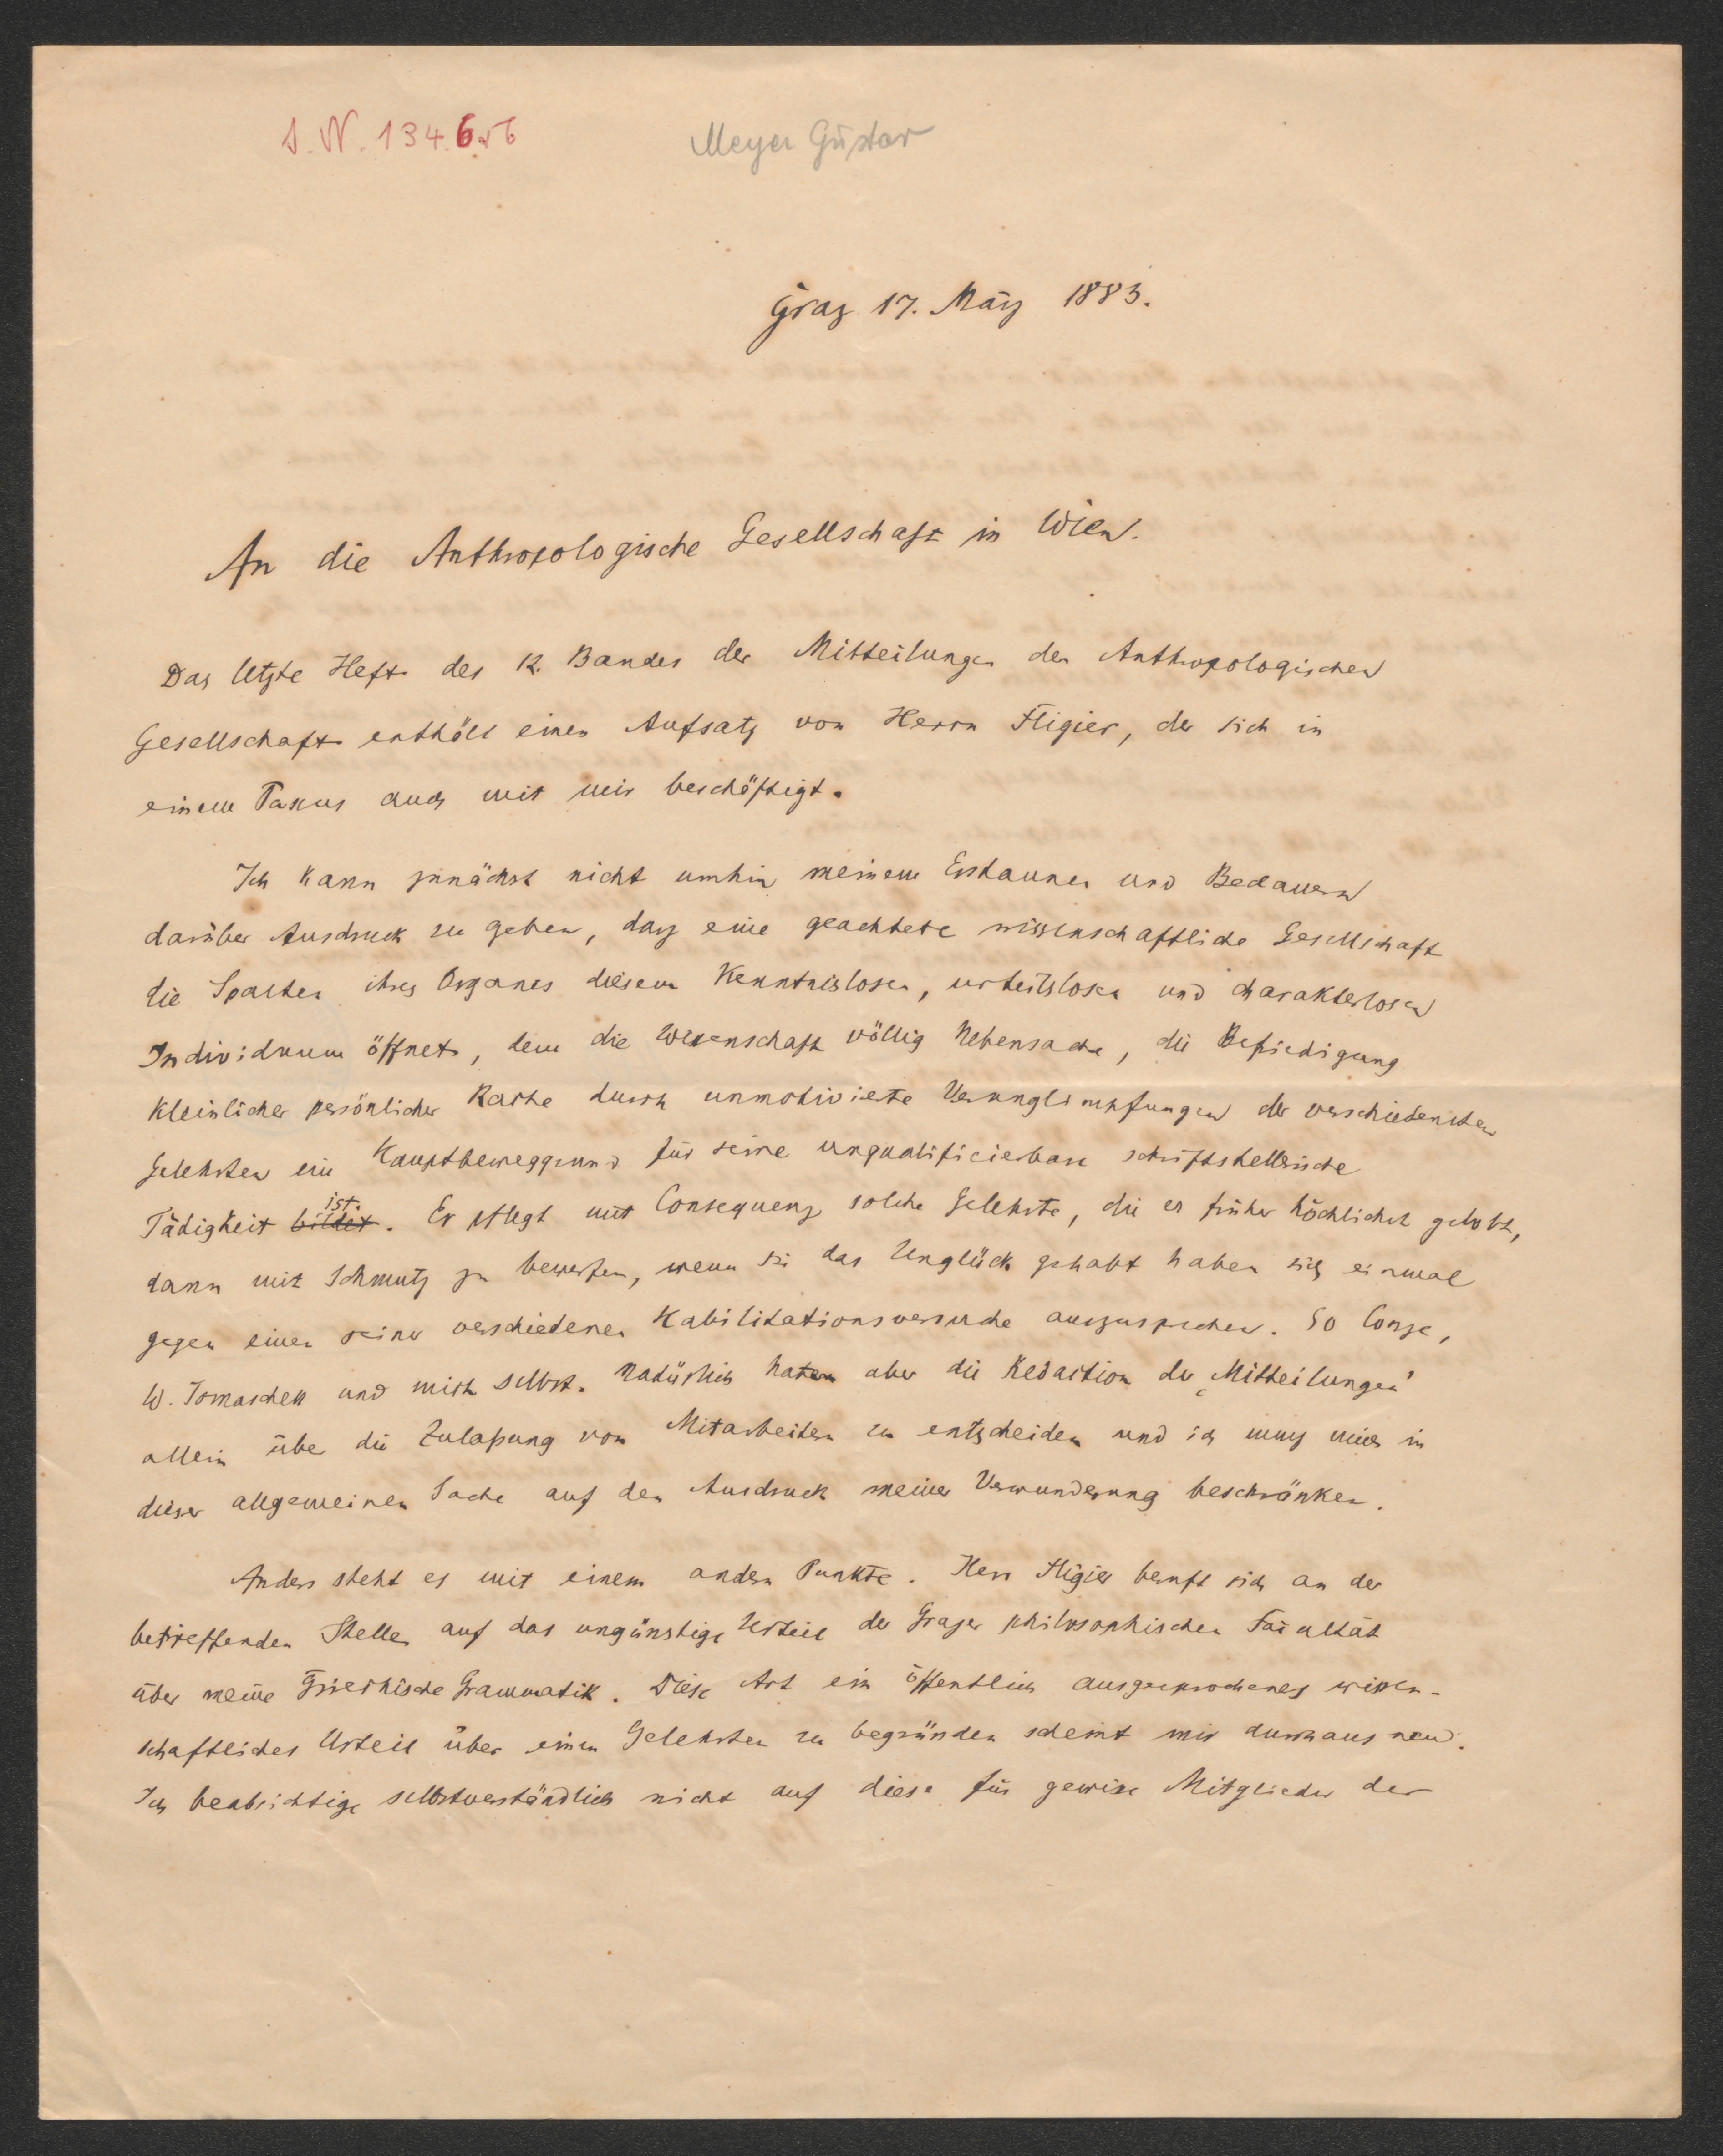 I. N. 134.656
Meyer Gustav
Graz 17. März 1883.
An die Anthropologische Gesellschaft in Wien.
Das letzte Heft des 12. Bandes der Mitteilungen der Anthropologischen
Gesellschaft enthält einen Aufsatz von Herrn Fligier, der sich in
einem Passus auch mit mir beschäftigt.
Ich kann zunächst nicht umhin meinem Erstaunen und Bedauern
darüber Ausdruck zu geben, dass eine geachtete wissenschaftliche Gesellschaft
die Spalten ihres Organes diesem kenntnislosen, urteilslosen und charakterlosen
Individuum öffnet, dem die Wissenschaft völlig Nebensache, die Befriedigung
kleinlicher persönlicher Rache durch unmotivierte Verunglimpfungen der verschiedensten
Gelehrten ein Hauptbeweggrund für seine unqualificierbare schriftstellerische
Tätigkeit bildet ist. Er pflegt mit Consequenz solche Gelehrte, die er früher höchlichst gelobt,
dann mit Schmutz zu bewerfen, wenn sie das Unglück gehabt haben sich einmal
gegen einen seiner verschiedenen Habilitationsversuche auszusprechen. So Conze,
W. Tomaschek und mich selbst. Natürlich haten aber die Redaction der „Mitteilungen"
allein über die Zulaßung von Mitarbeitern zu entscheiden und ich muss mich in
dieser allgemeinen Sache auf den Ausdruck meiner Verwunderung beschränken.
Anders steht es mit einem andern Punkte. Herr Fligier beruft sich an der
betreffenden Stelle auf das ungünstige Urteil der Grazer philosophischen Facultät
über meine Griechische Grammatik. Diese Art ein öffentlich ausgesprochenes wissen-
schaftliches Urteil über einen Gelehrten zu begründen scheint mir durchaus neu.
Ich beabsichtige selbstverständlich nicht auf diese für gewisse Mitglieder der